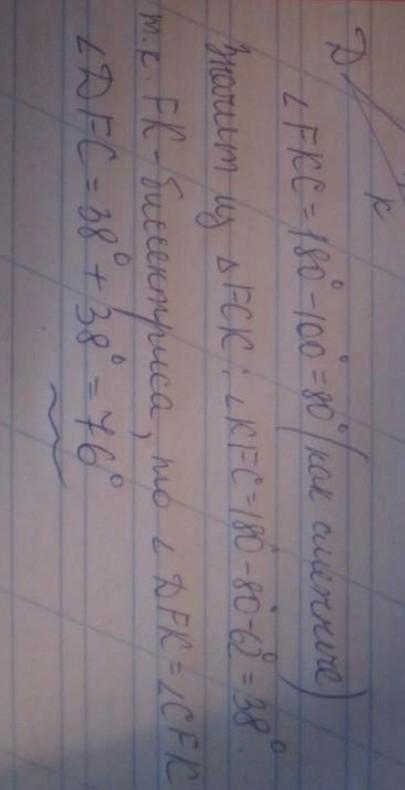 Д
К
∠FKC = 180° - 100° = 80° (как смежные)
Значит из △FCK: ∠KFC = 180° - 80° - 62° = 38°.
т.к. FK - биссектриса, то ∠DFK = ∠CFK
∠DFC = 38° + 38° = 76°